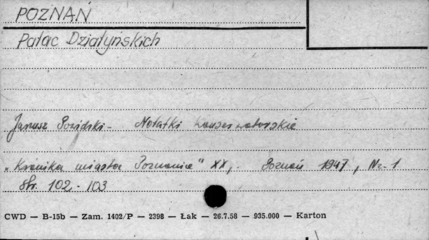 POZNAŃ
Pałac Działyńskich
Janusz - Notatki konserwatorskie
"Kronika miasta Poznania" XX, . Poznań 1947, Nr. 1
Str. 102 - 103
CWD — B-15b — Zam. 1402/P — 2398 — Łak — 26.7.58 — 935.000 — Karton